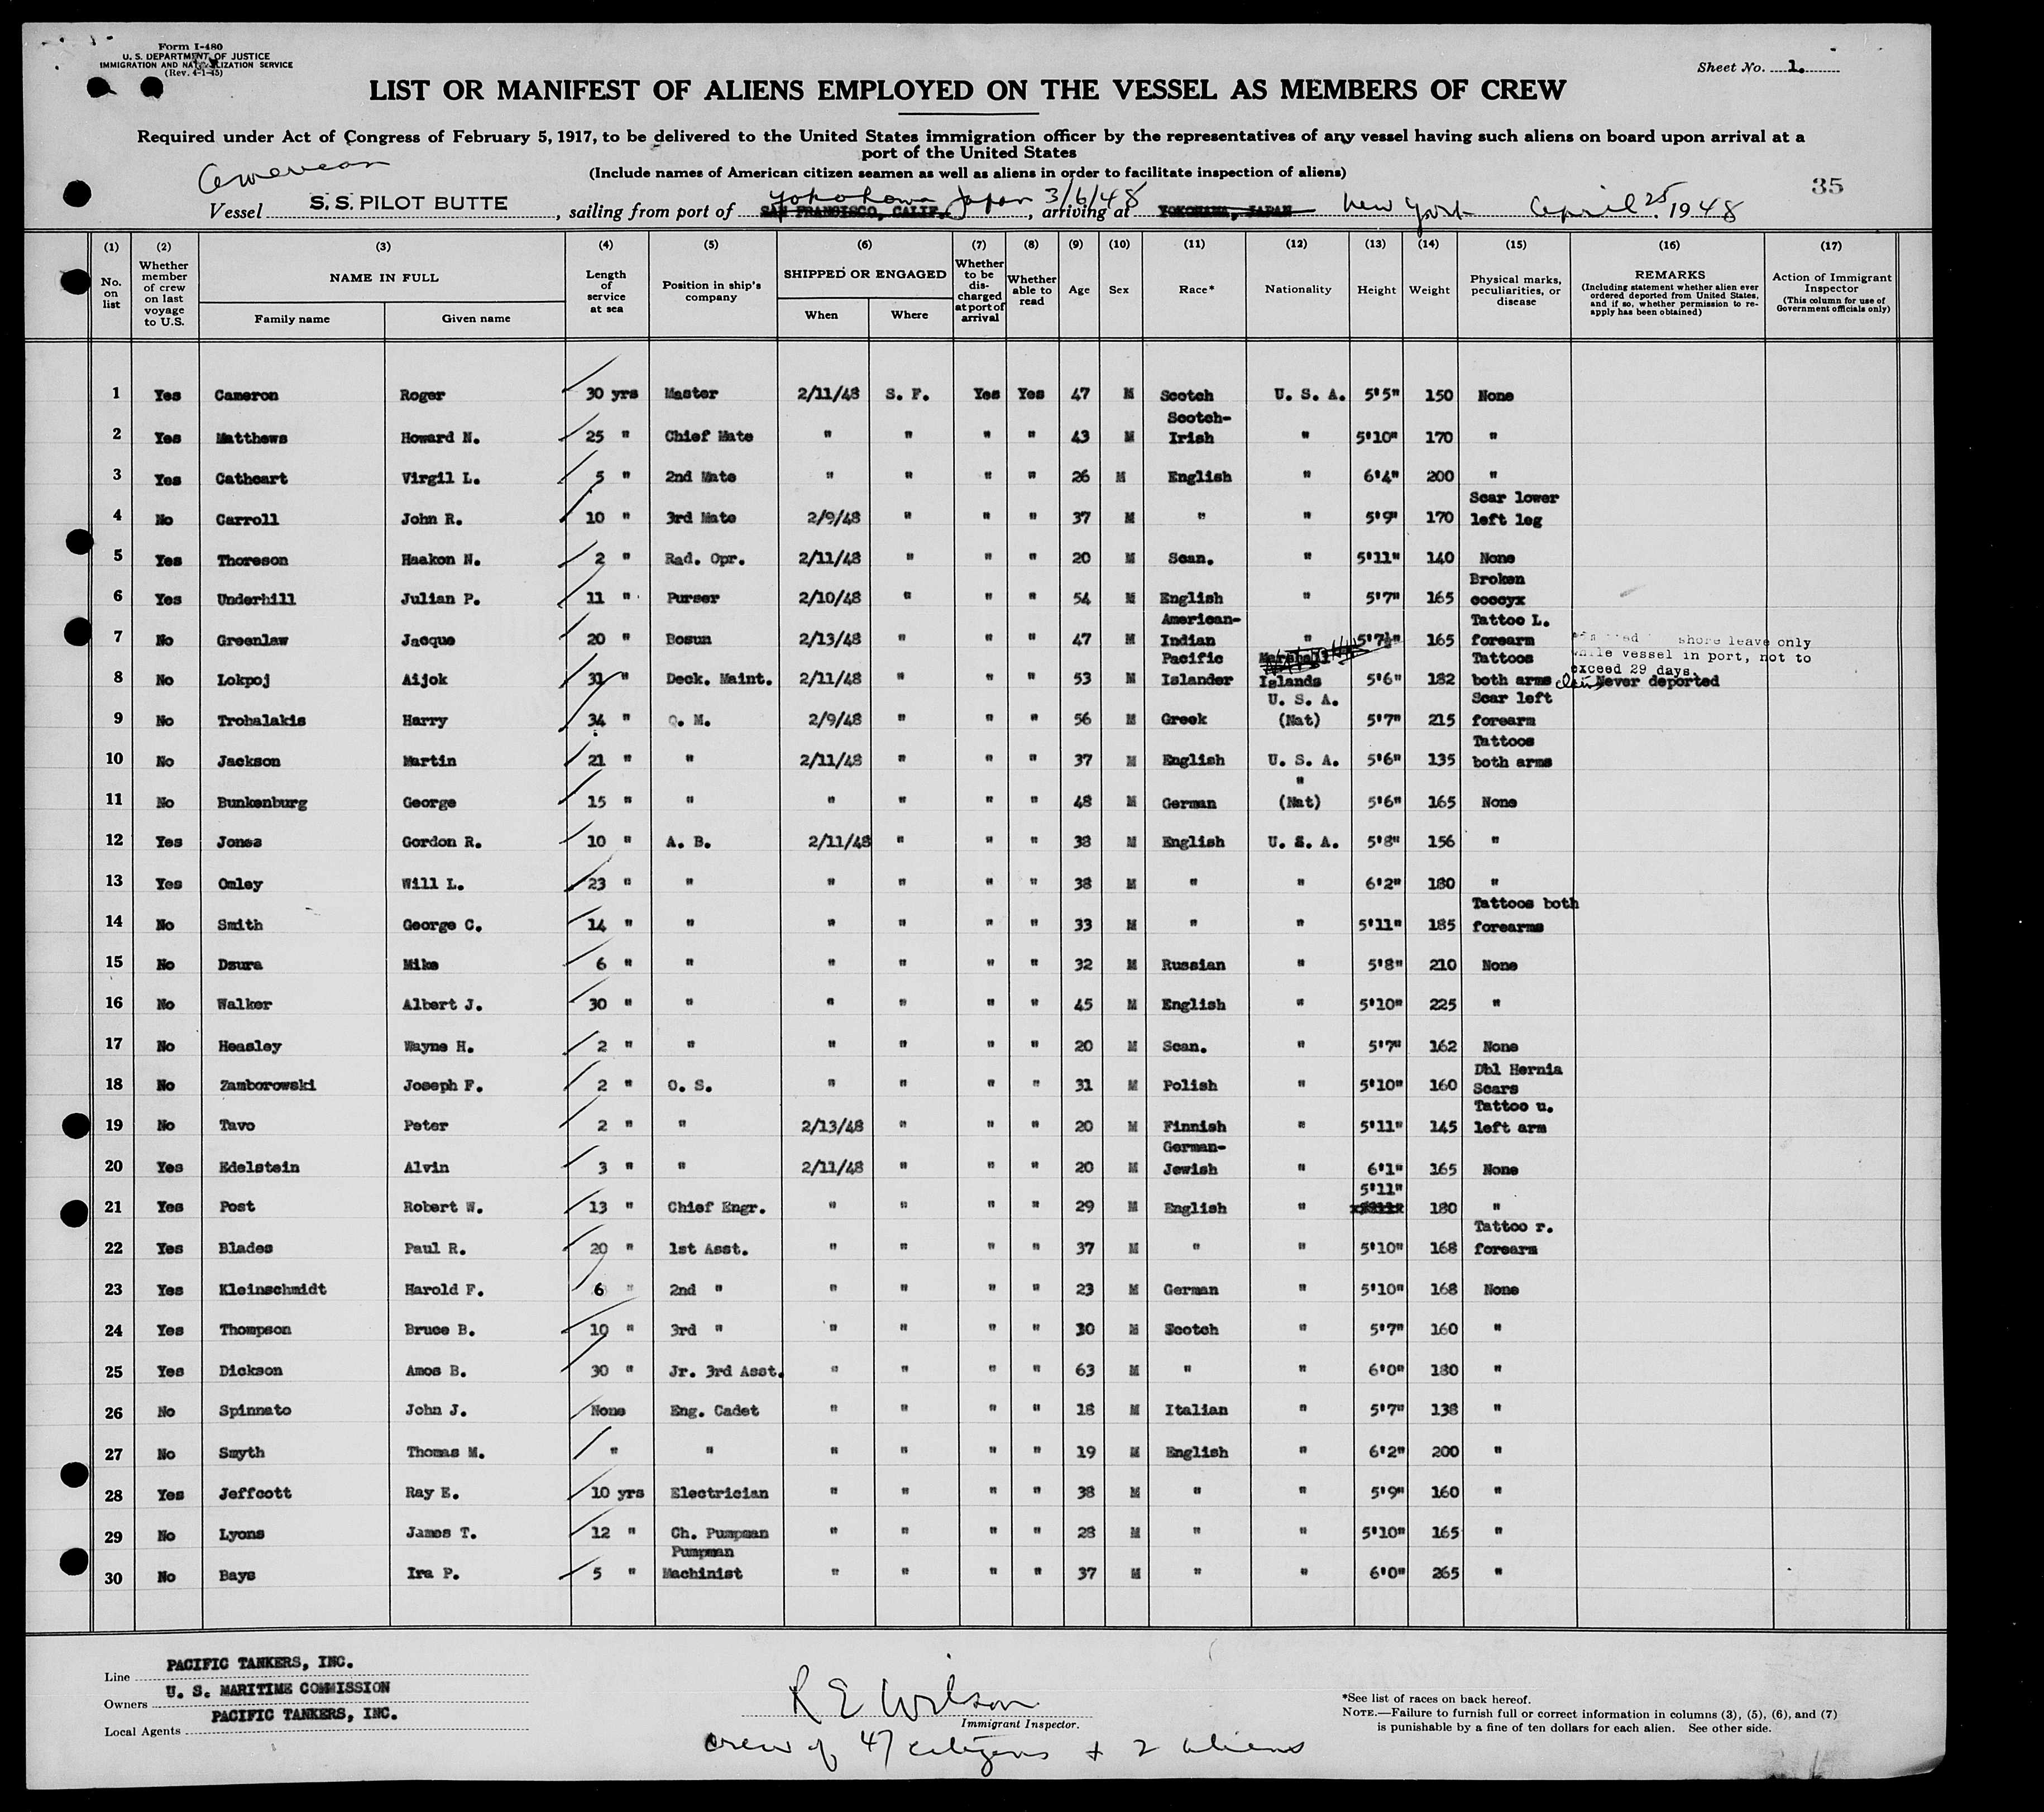 Form I-480
U. S. DEPARTMENT OF JUSTICE
IMMIGRATION AND NATURALIZATION SERVICE
(Rev. 4-1-45)
Sheet No. 1.
LIST OR MANIFEST OF ALIENS EMPLOYED ON THE VESSEL AS MEMBERS OF CREW
Required under Act of Congress of February 5, 1917, to be delivered to the United States immigration officer by the representatives of any vessel having such aliens on board upon arrival at a
port of the United States
(Include names of American citizen seamen as well as aliens in order to facilitate inspection of aliens)
American
35
Vessel S. S. PILOT BUTTE, sailing from port of SAN FRANCISCO, CALIF. Yokohama Japan 3/6/48, arriving at YOKOHAMA, JAPAN New York April 25, 1948
(1) (2) (3) (4) (5) (6) (7) (8) (9) (10) (11) (12) (13) (14) (15) (16) (17)
No. on list | Whether member of crew on last voyage to U.S. | NAME IN FULL Family name Given name | Length of service at sea | Position in ship's company | SHIPPED OR ENGAGED When Where | Whether to be discharged at port of arrival | Whether able to read | Age | Sex | Race* | Nationality | Height | Weight | Physical marks, peculiarities, or disease | REMARKS (Including statement whether alien ever ordered deported from United States, and if so, whether permission to re-apply has been obtained) | Action of Immigrant Inspector (This column for use of Government officials only)
1 Yes Cameron Roger 30 yrs Master 2/11/48 S. F. Yes Yes 47 M Scotch U. S. A. 5'5" 150 None
2 Yes Matthews Howard N. 25 " Chief Mate " " " " 43 M Scotch-Irish " 5'10" 170 "
3 Yes Cathcart Virgil L. 5 " 2nd Mate " " " " 26 M English " 6'4" 200 "
4 No Carroll John R. 10 " 3rd Mate 2/9/48 " " " 37 M " " 5'9" 170 Scar lower left leg
5 Yes Thoreson Haakon N. 2 " Rad. Opr. 2/11/48 " " " 20 M Scan. " 5'11" 140 None
6 Yes Underhill Julian P. 11 " Purser 2/10/48 " " " 54 M English " 5'7" 165 Broken coccyx
7 No Greenlaw Jacque 20 " Bosun 2/13/48 " " " 47 M American-Indian " 5'7½" 165 Tattoo L. forearm
shore leave only
while vessel in port, not to
exceed 29 days.
8 No Lokpoj Aijok 31 " Deck. Maint. 2/11/48 " " " 53 M Pacific Islander Marshall Islands 5'6" 182 Tattoos both arms Never deported
9 No Trohalakis Harry 34 " Q. M. 2/9/48 " " " 56 M Greek U. S. A. (Nat) 5'7" 215 Scar left forearm
10 No Jackson Martin 21 " " 2/11/48 " " " 37 M English U. S. A. 5'6" 135 Tattoos both arms
11 No Bunkenburg George 15 " " " " " " 48 M German " (Nat) 5'6" 165 None
12 Yes Jones Gordon R. 10 " A. B. 2/11/48 " " " 38 M English U. S. A. 5'8" 156 "
13 Yes Omley Will L. 23 " " " " " " 38 M " " 6'2" 180 "
14 No Smith George C. 14 " " " " " " 33 M " " 5'11" 185 Tattoos both forearms
15 No Dzura Mike 6 " " " " " " 32 M Russian " 5'8" 210 None
16 No Walker Albert J. 30 " " " " " " 45 M English " 5'10" 225 "
17 No Heasley Wayne H. 2 " " " " " " 20 M Scan. " 5'7" 162 None
18 No Zamborowski Joseph F. 2 " O. S. " " " " 31 M Polish " 5'10" 160 Dbl Hernia Scars
19 No Tavo Peter 2 " " 2/13/48 " " " 20 M Finnish " 5'11" 145 Tattoo u. left arm
20 Yes Edelstein Alvin 3 " " 2/11/48 " " " 20 M German-Jewish " 6'1" 165 None
21 Yes Post Robert W. 13 " Chief Engr. " " " " 29 M English " 5'11" 180 "
22 Yes Blades Paul R. 20 " 1st Asst. " " " " 37 M " " 5'10" 168 Tattoo r. forearm
23 Yes Kleinschmidt Harold F. 6 " 2nd " " " " " 23 M German " 5'10" 168 None
24 Yes Thompson Bruce B. 10 " 3rd " " " " " 30 M Scotch " 5'7" 160 "
25 Yes Dickson Amos B. 30 " Jr. 3rd Asst. " " " " 63 M " " 6'0" 180 "
26 No Spinnato John J. None Eng. Cadet " " " " 18 M Italian " 5'7" 138 "
27 No Smyth Thomas M. " " " " " " 19 M English " 6'2" 200 "
28 Yes Jeffcott Ray E. 10 yrs Electrician " " " " 38 M " " 5'9" 160 "
29 No Lyons James T. 12 " Ch. Pumpman " " " " 28 M " " 5'10" 165 "
30 No Bays Ira P. 5 " Pumpman Machinist " " " " 37 M " " 6'0" 265 "
Line PACIFIC TANKERS, INC.
Owners U. S. MARITIME COMMISSION
Local Agents PACIFIC TANKERS, INC.
R E Wilson
Immigrant Inspector.
crew of 47 citizens + 2 aliens
*See list of races on back hereof.
NOTE.—Failure to furnish full or correct information in columns (3), (5), (6), and (7)
is punishable by a fine of ten dollars for each alien. See other side.